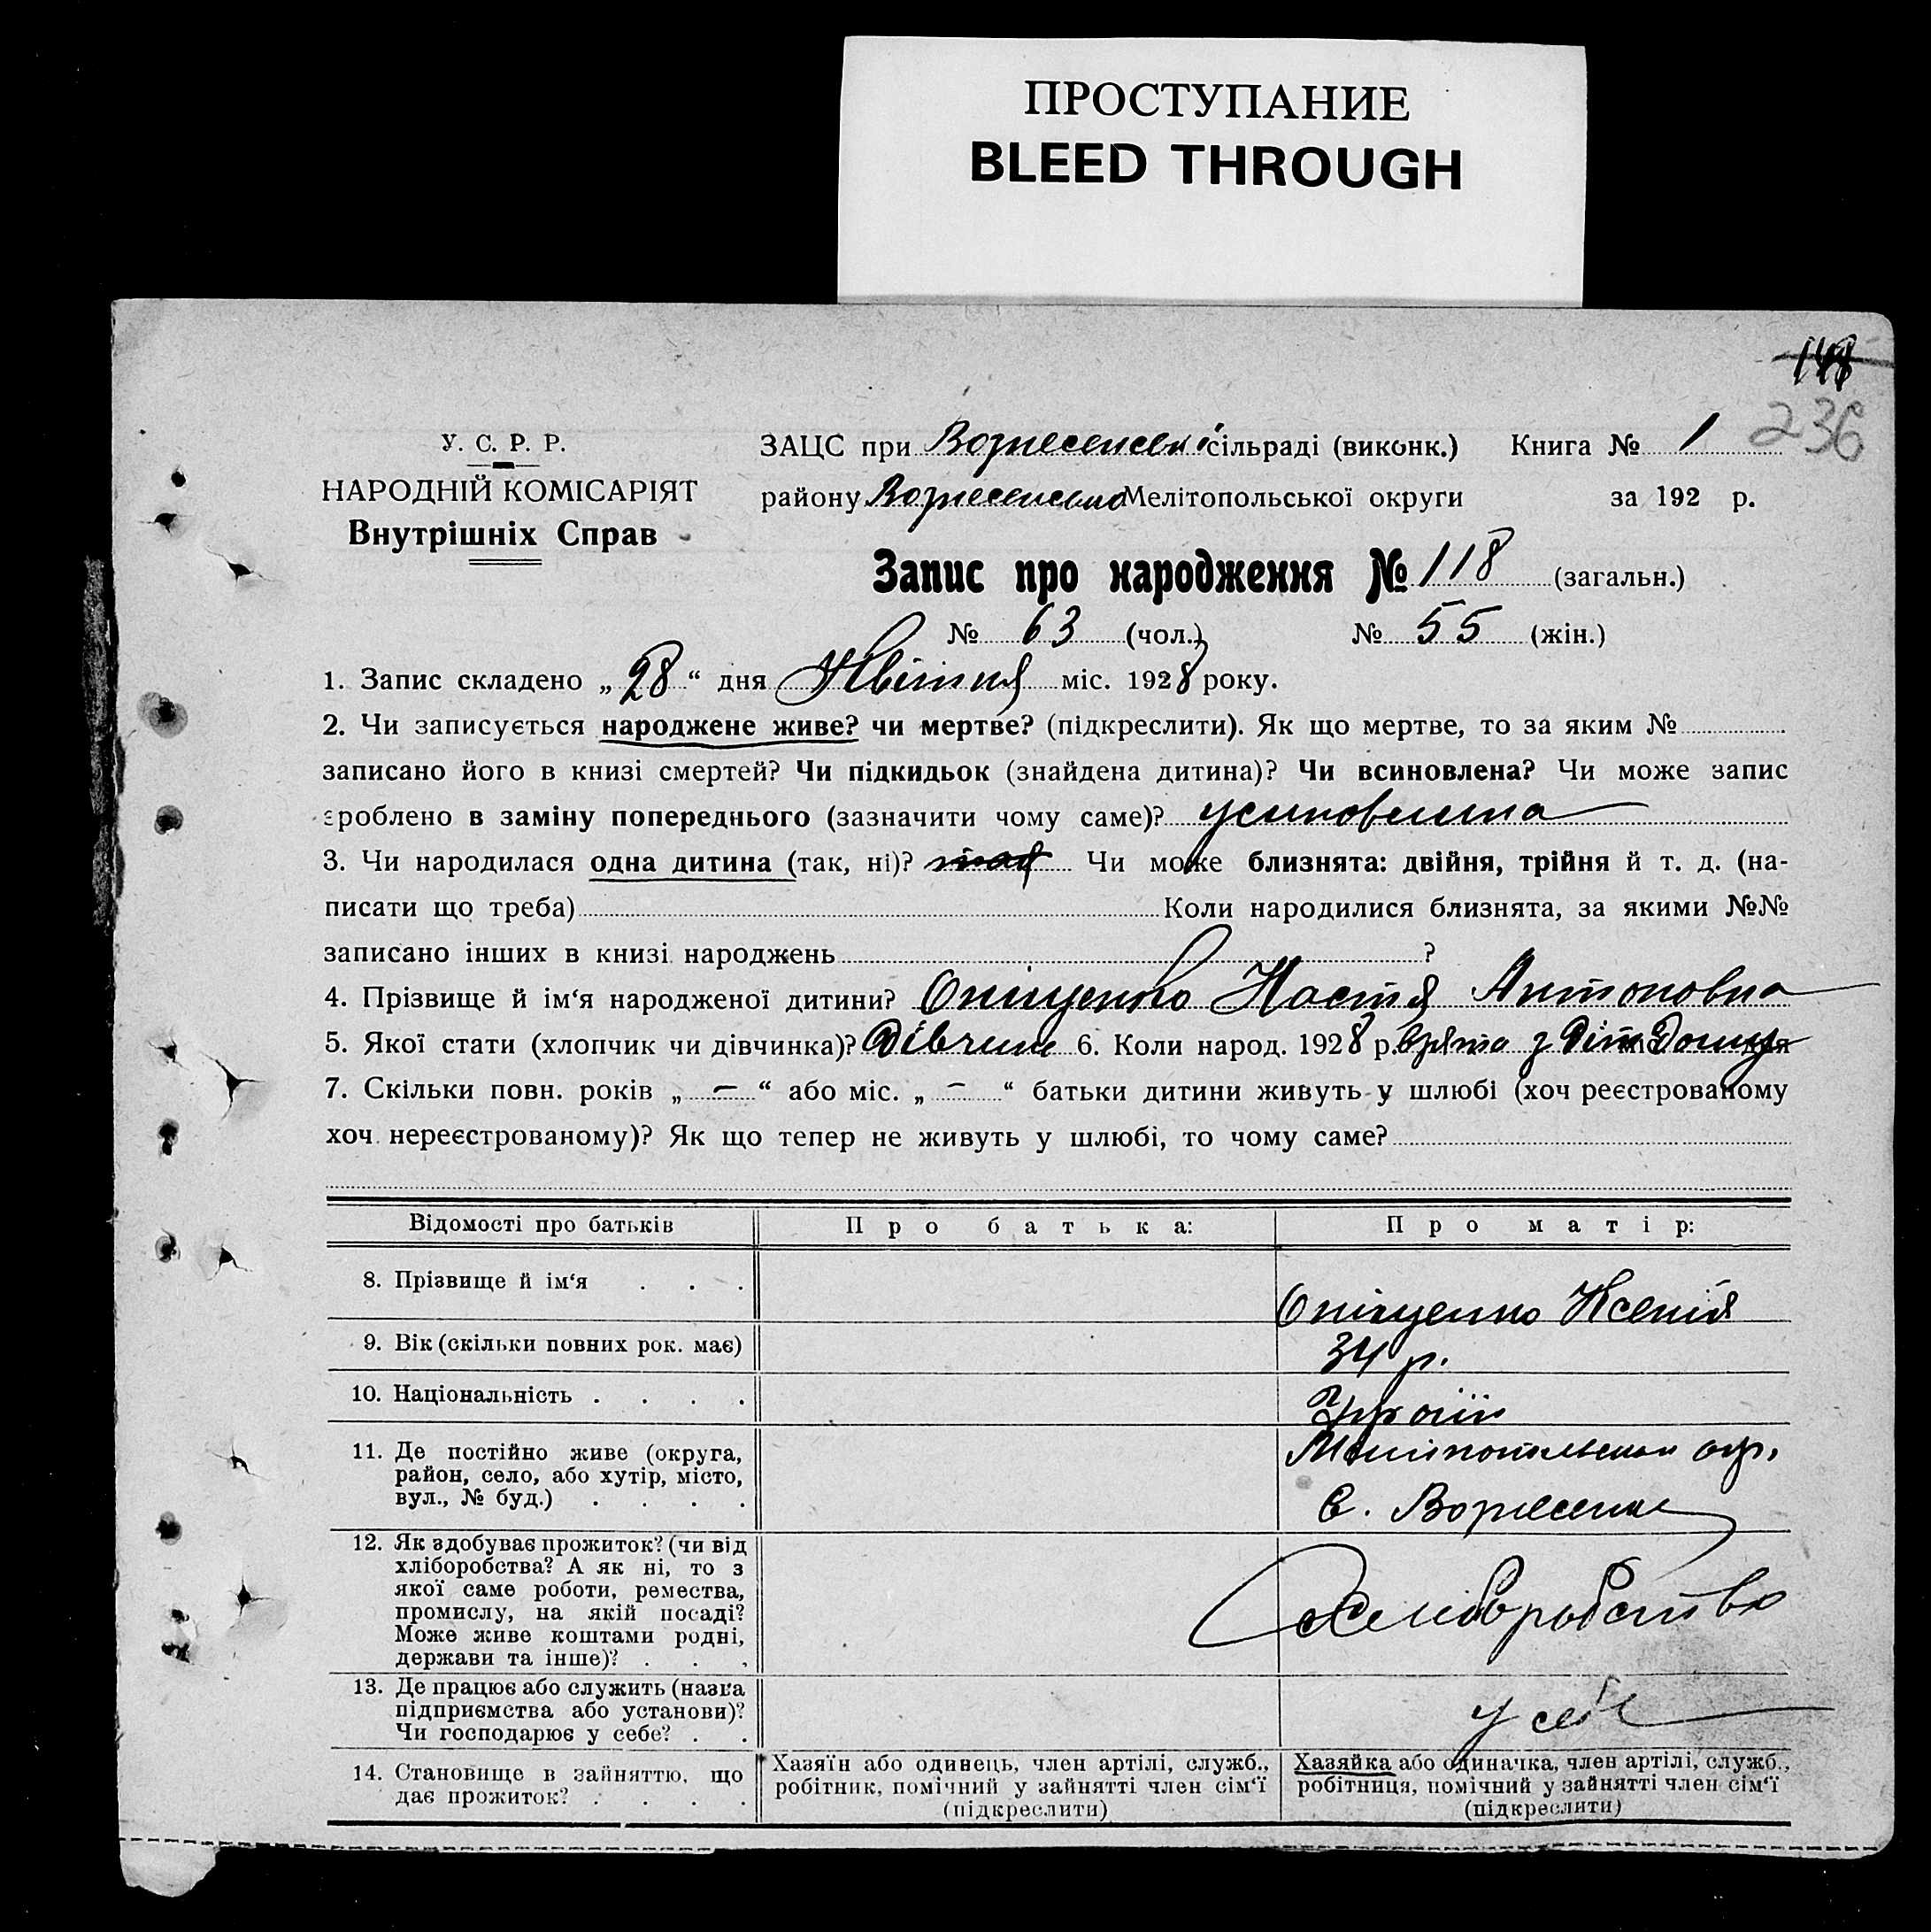 ПРОСТУПАНИЕ
BLEED THROUGH
148
236
У. С. Р. Р.
НАРОДНІЙ КОМІСАРІЯТ
Внутрішніх Справ
ЗАЦС при Вознесенській сільраді (виконк.) Книга № 1
району Вознесенсько Мелітопольської округи за 192 р.
Запис про народження № 118 (загальн.)
№ 63 (чол.) № 55 (жін.)
1. Запис складено „ 28 “ дня Квітня міс. 1928 року.
2. Чи записується народжене живе? чи мертве? (підкреслити). Як що мертве, то за яким №
записано його в книзі смертей? Чи підкидьок (знайдена дитина)? Чи всиновлена? Чи може запис
зроблено в заміну попереднього (зазначити чому саме)? усиновлина
3. Чи народилася одна дитина (так, ні)? так Чи може близнята: двійня, трійня й т. д. (на-
писати що треба) Коли народилися близнята, за якими №№
записано інших в книзі народжень ?
4. Прізвище й ім‘я народженої дитини? Оніщенко Настя Антоновна
5. Якої стати (хлопчик чи дівчинка)? Дівчина 6. Коли народ. 1928 р. взята з Діт Дому дня
7. Скільки повн. років „ — “ або міс. „ — “ батьки дитини живуть у шлюбі (хоч реєстрованому
хоч нереєстрованому)? Як що тепер не живуть у шлюбі, то чому саме?
Відомості про батьків Про батька: Про матір:
8. Прізвище й ім‘я . . . Оніщенко Ксенія
9. Вік (скільки повних рок. має) 34 р.
10. Національність . . . .
11. Де постійно живе (округа, Мелітопольська окр.
район, село, або хутір, місто,
вул., № буд.) . . . . с. Вознесенка
12. Як здобуває прожиток? (чи від
хліборобства? А як ні, то з
якої саме роботи, ремества,
промислу, на якій посаді? Хліборобство
Може живе коштами родні,
держави та інше)? . . .
13. Де працює або служить (назва
підприємства або установи)? у себе
Чи господарює у себе? . .
14. Становище в зайняттю, що
дає прожиток? . . . .
Хазяїн або одинець, член артілі, служб.,
робітник, помічний у зайнятті член сім‘ї
(підкреслити)
Хазяйка або одиначка, член артілі, служб.,
робітниця, помічний у зайнятті член сім‘ї
(підкреслити)